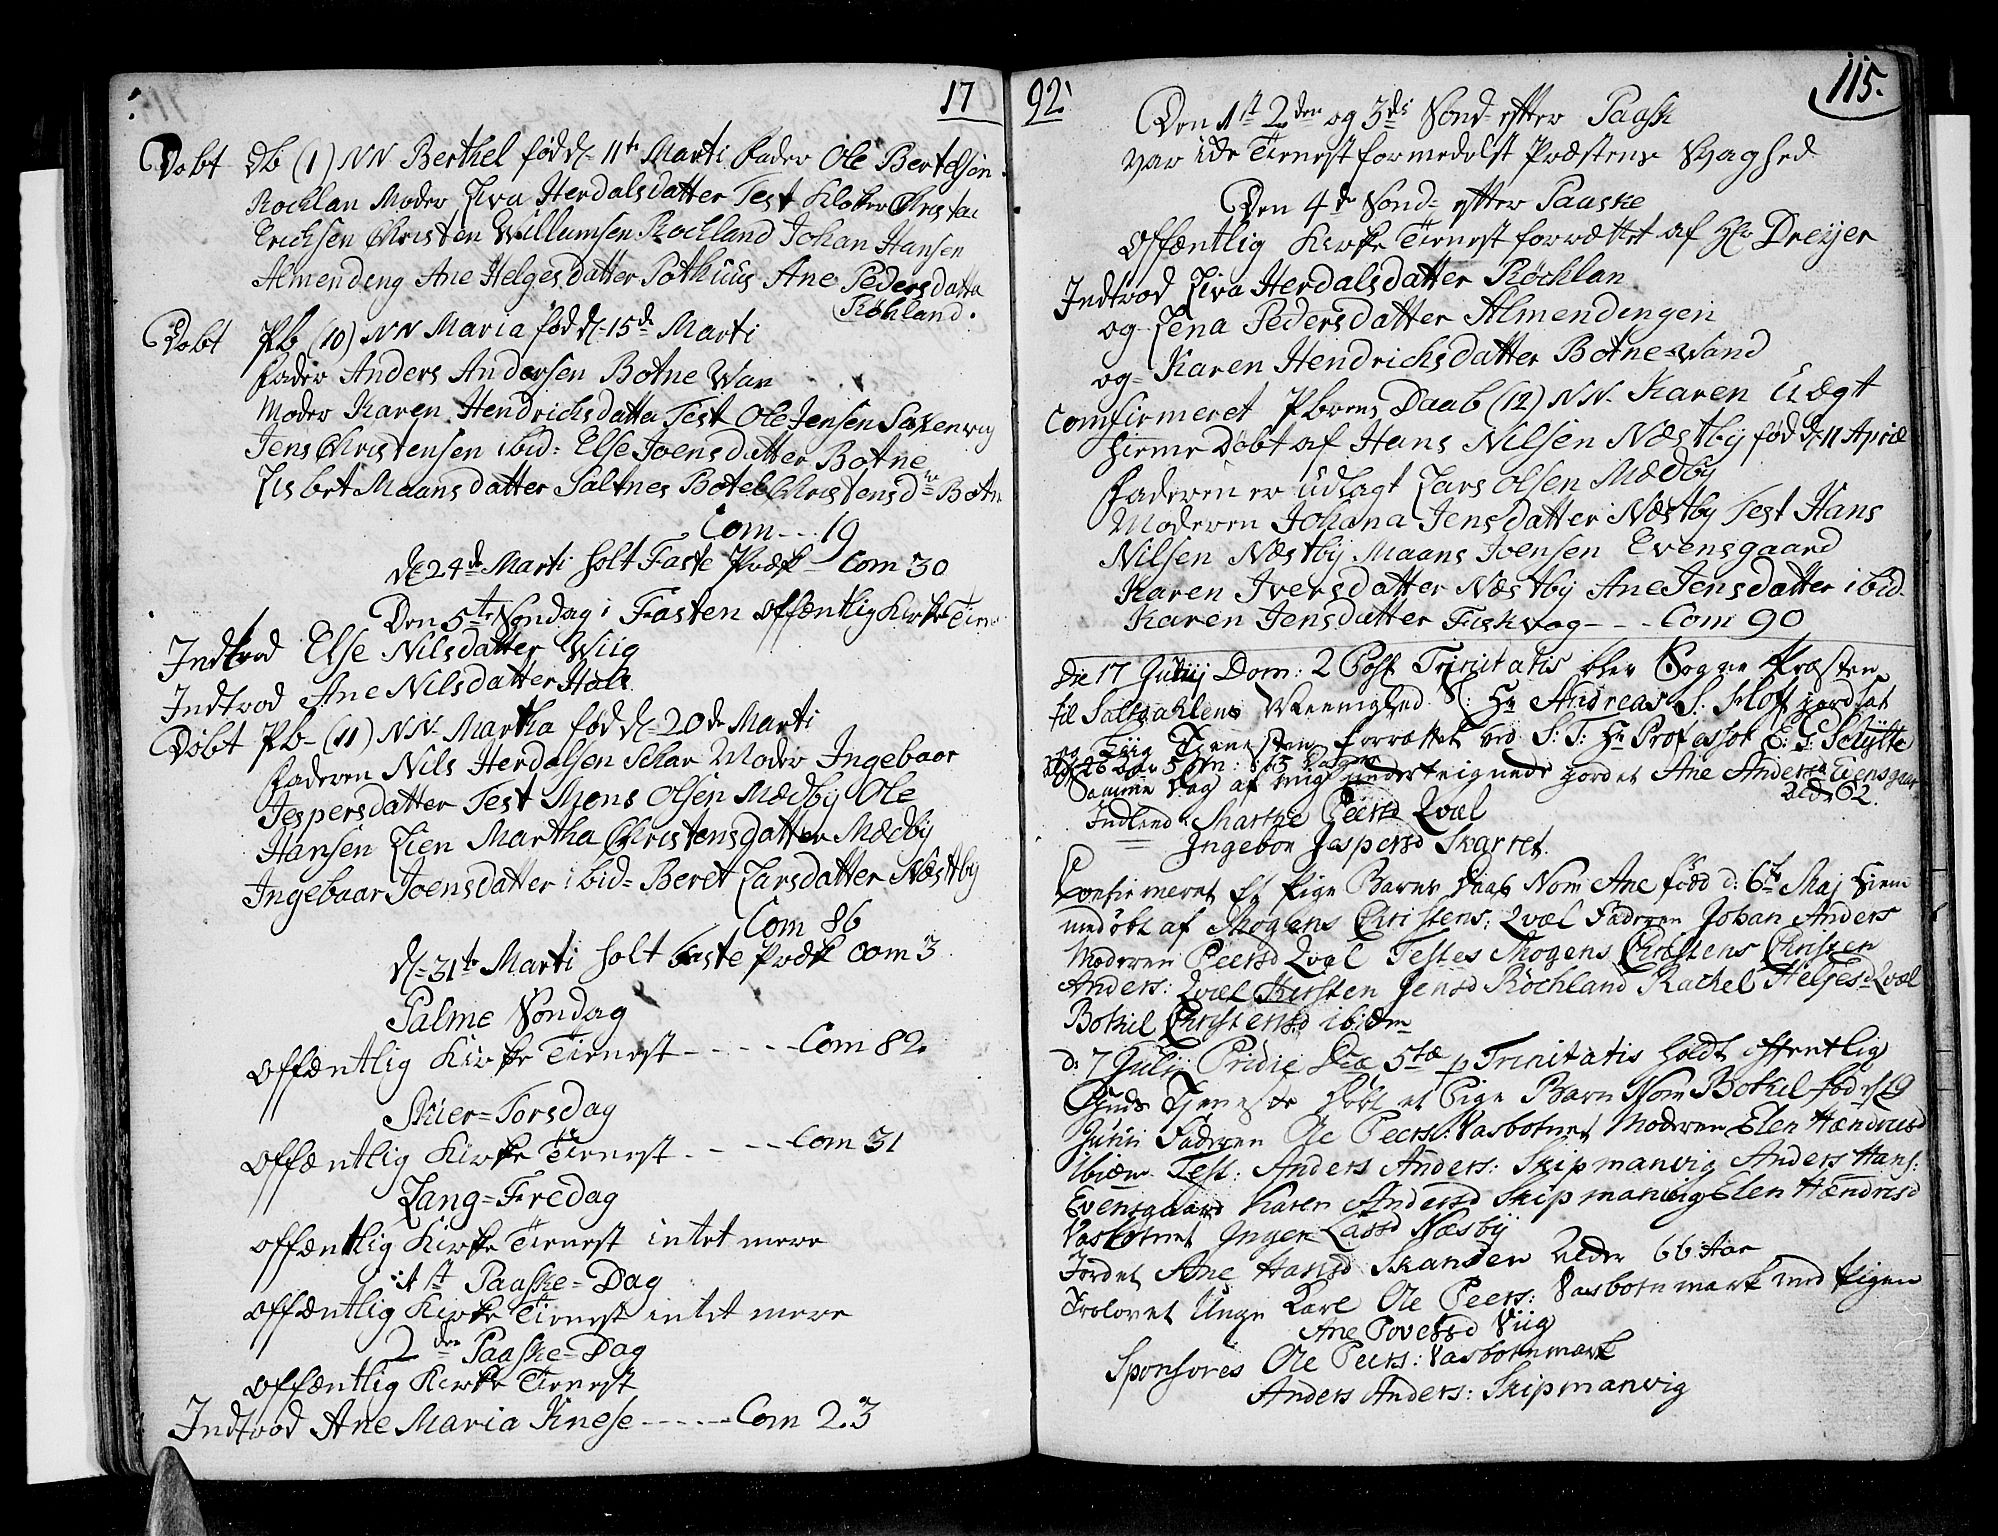 17
Døbt Db (1) NN Berthel fød d 11te Marti Fader Ole Bertelsen
Rochlan Moder Liva Herdalsdatter Test Kloker Christen
Erichsen Christen Willumsen Rochland Johan Hansen
Almendeng Ane Helgesdatter Pothuus Ane Pedersdatta
Røkland.
Døbt Pb (10) NN Maria fød d 15de Marti
Fader Anders Andersen Botne Wan
Moder Karen Hendrichsdatta Test Ole Jensen Saxenvig
Jens Christensen ibid: Else Joensdatter Botne
Lisbet Maansdatter Saltnes Botel Christensdr Botn
Com --- 19
d 24de Marti holt Faste Præk Com 30
Den 5te Søndag i Fasten offæntlig Kirke Tien
Indtrod Else Nilsdatter Wiig
Indtrod Ane Nilsdatter Hals
Døbt Pb - (11) NN. Martha fød d 20de Marti
Faderen Nils Herdalsen Schar Moder Ingebaar
Jespersdatter Test Mons Olsen Mædby Ole
Hansen Lien Martha Christensdatter Mædby
Ingebaar Joensdatter ibid= Beret Larsdatter Næstby
Com 86
d= 31te Marti holt Faste Præk Com 3
Palme Søndag
offæntlig Kirke Tienest - - - - - Com 82
Skier=Torsdag
offæntlig Kirke Tienest - - - - Com 31
Lang=Fredag
offæntlig Kirke Tienest intet mere
1st Paaske=Dag
offæntlig Kirke Tienest intet mere
2den Paaske=Dag
offæntlig Kirke Tienest
Indtrod Ane Maria Knese - - - - - Com 23
92
115.
Den 1st 2den og 3de Sønd= efter Paask
var icke Tienest formedelst Præstens Svaghed
Den 4de Sønd= efter Paaske
offæntlig Kirke Tienest forrættet af Hr Dreyer
Indtrod Liva Herdalsdatter Røchlan
og Lena Pedersdatter Almendingen
og= Karen Hendrichsdatter Botne=Wand
Comfirmeret Pbrens Daab (12) NN. Karen Uægt
hieme døbt af Hans Nilsen Næstby fød d 11 April
Faderen er udlagt Lars Olsen Mædby
Moderen Johana Jensdatter Næstby Test Hans
Nilsen Næstby Maans Joensen Evensgaard
Karen Iversdatter Næstby Ane Jensdatter ibid
Karen Jensdatter Fiskvog - - - Com 90
Die 17 Junij Dom: 2 Post Trinitatis blev Sogne Præsten
til Saltdahlens Meenighed Hr Andreas Kloft jordsat
og Liig Tjenesten forrættet ved S: T: Hr Professor E: G: Schytte
Samme Dag af mig underteignede jordet Ane Anders Evensgaar
Ald 62.
Indled: Marthe Peersd Qvæl
Ingebor Jespersd Skarret.
Confirmeret Et Pige Barns Daab Nom Ane fød d: 6te Maj hiem
medøbt af Mogens Christens: Qvæl Faderen Johan Anders
Moderen Peersd Qvæl Testes Mogens Christens Christen
Anders: Qvæl Kirsten Jensd Røchland Rachel Helges Qvæl
Bothel Christensd ibidem
d: 7 Julij Pridie Dca 5tæ p Trinitatis holdt offentlig
Guds Tjeneste Døbt et Pige Barn Nom Bothel fød d 19
Junii Faderen Ole Peers: Vasbotnet Moderen Elen Hændricsd
ibidem Test: Anders Anders: Skipmanvig Anders Hans:
Evensgaard Karen Andersd Skipmanvig Elen Hændrisd
Vasbotnet Inger Larsd Næsby
Jordet Ane Hansd Skansen Alder 66 Aar
Trolovet Unge Karl Ole Peers: Vasbotnmark med Pigen
Ane Povelsd Viig
Sponsores Ole Peers: Vasbotnmark
Anders Anders: Skipmanvig